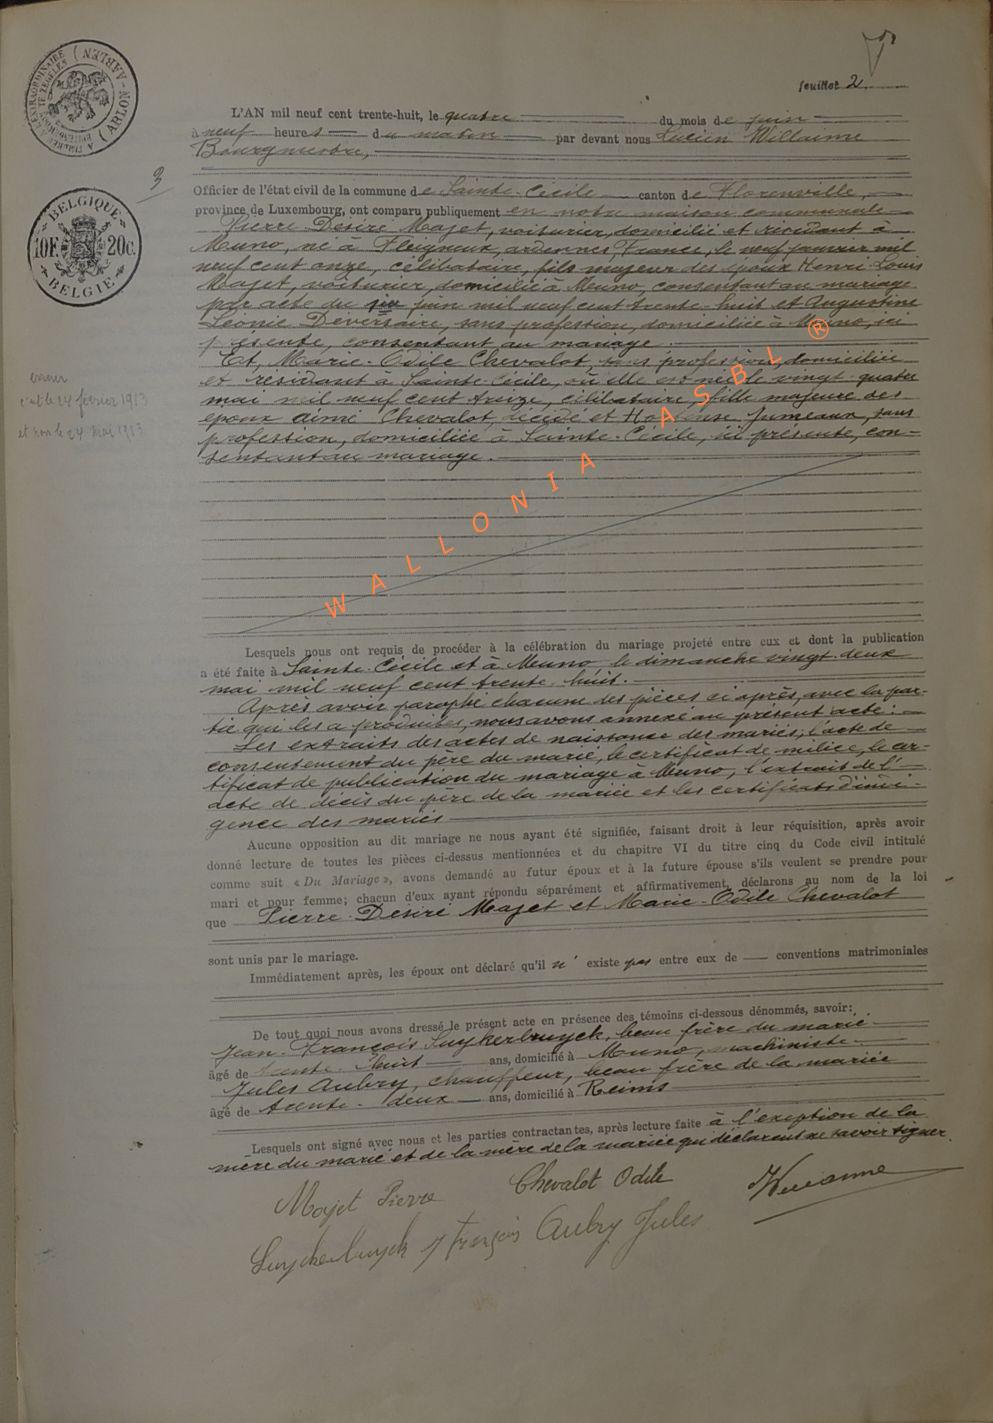 feuillet 2
L'AN mil neuf cent trente-huit, le quatre du mois de juin
à neuf heures du matin par devant nous Lucien Willaime
Bourgmestre,
3
Officier de l'état civil de la commune de Sainte-Cécile canton de Florenville,
province de Luxembourg, ont comparu publiquement en notre maison communale
Pierre Désiré Majet, voiturier, domicilié et résidant à
Muno, né à Fleigneux, ardennes, France, le neuf janvier mil
neuf cent onze, célibataire, fils majeur des époux Henri Louis
Majet, voiturier, domicilié à Muno, consentant au mariage
par acte du juin mil neuf cent trente-huit et Augustine
Léonie Deversaire, sans profession, domiciliée à Muno, ici
présente, consentant au mariage.
Et, Marie-Odile Chevalot, sans profession, domiciliée
et résidant à Sainte-Cécile, où elle est née le vingt-quatre
mai mil neuf cent treize, célibataire, fille majeure des
époux Aimé Chevalot, décédé et Hortense Jumeaux, sans
profession, domiciliée à Sainte-Cécile, ici présente, con-
sentant au mariage.
erreur
c'est le 24 février 1913
et non le 24 mai 1913
WALLONIA ASBL ®
Lesquels nous ont requis de procéder à la célébration du mariage projeté entre eux et dont la publication
a été faite à Sainte-Cécile et à Muno le dimanche vingt-deux
mai mil neuf cent trente-huit.
Après avoir paraphé chacune des pièces ci-après, avec la par-
tie qui les a produites, nous avons annexé au présent acte :
Les extraits des actes de naissance des mariés, l'acte de
consentement du père du marié, le certificat de milice, le cer-
tificat de publication du mariage à Muno, l'extrait de l'
acte de décès du père de la mariée et les certificats d'indi-
gence des mariés
Aucune opposition au dit mariage ne nous ayant été signifiée, faisant droit à leur réquisition, après avoir
donné lecture de toutes les pièces ci-dessus mentionnées et du chapitre VI du titre cinq du Code civil intitulé
comme suit « Du Mariage », avons demandé au futur époux et à la future épouse s'ils veulent se prendre pour
mari et pour femme; chacun d'eux ayant répondu séparément et affirmativement, déclarons au nom de la loi
que Pierre-Désiré Majet et Marie-Odile Chevalot
sont unis par le mariage.
Immédiatement après, les époux ont déclaré qu'il n' existe pas entre eux de conventions matrimoniales
De tout quoi nous avons dressé le présent acte en présence des témoins ci-dessous dénommés, savoir:
Jean-François Suykerbruyck, beau frère du marié
âgé de trente-huit ans, domicilié à Muno, machiniste
Jules Aubry, chauffeur, beau frère de la mariée
âgé de trente-deux ans, domicilié à Reims
Lesquels ont signé avec nous et les parties contractantes, après lecture faite à l'exeption de la
mère du marié et de la mère de la mariée qui déclarent ne savoir signer.
Majet Pierre Chevalot Odile Willaime
Suykerbuyck J François Aubry Jules
BELGIQUE
10F. 20c.
BELGIE
(ARLON-AARLEN)